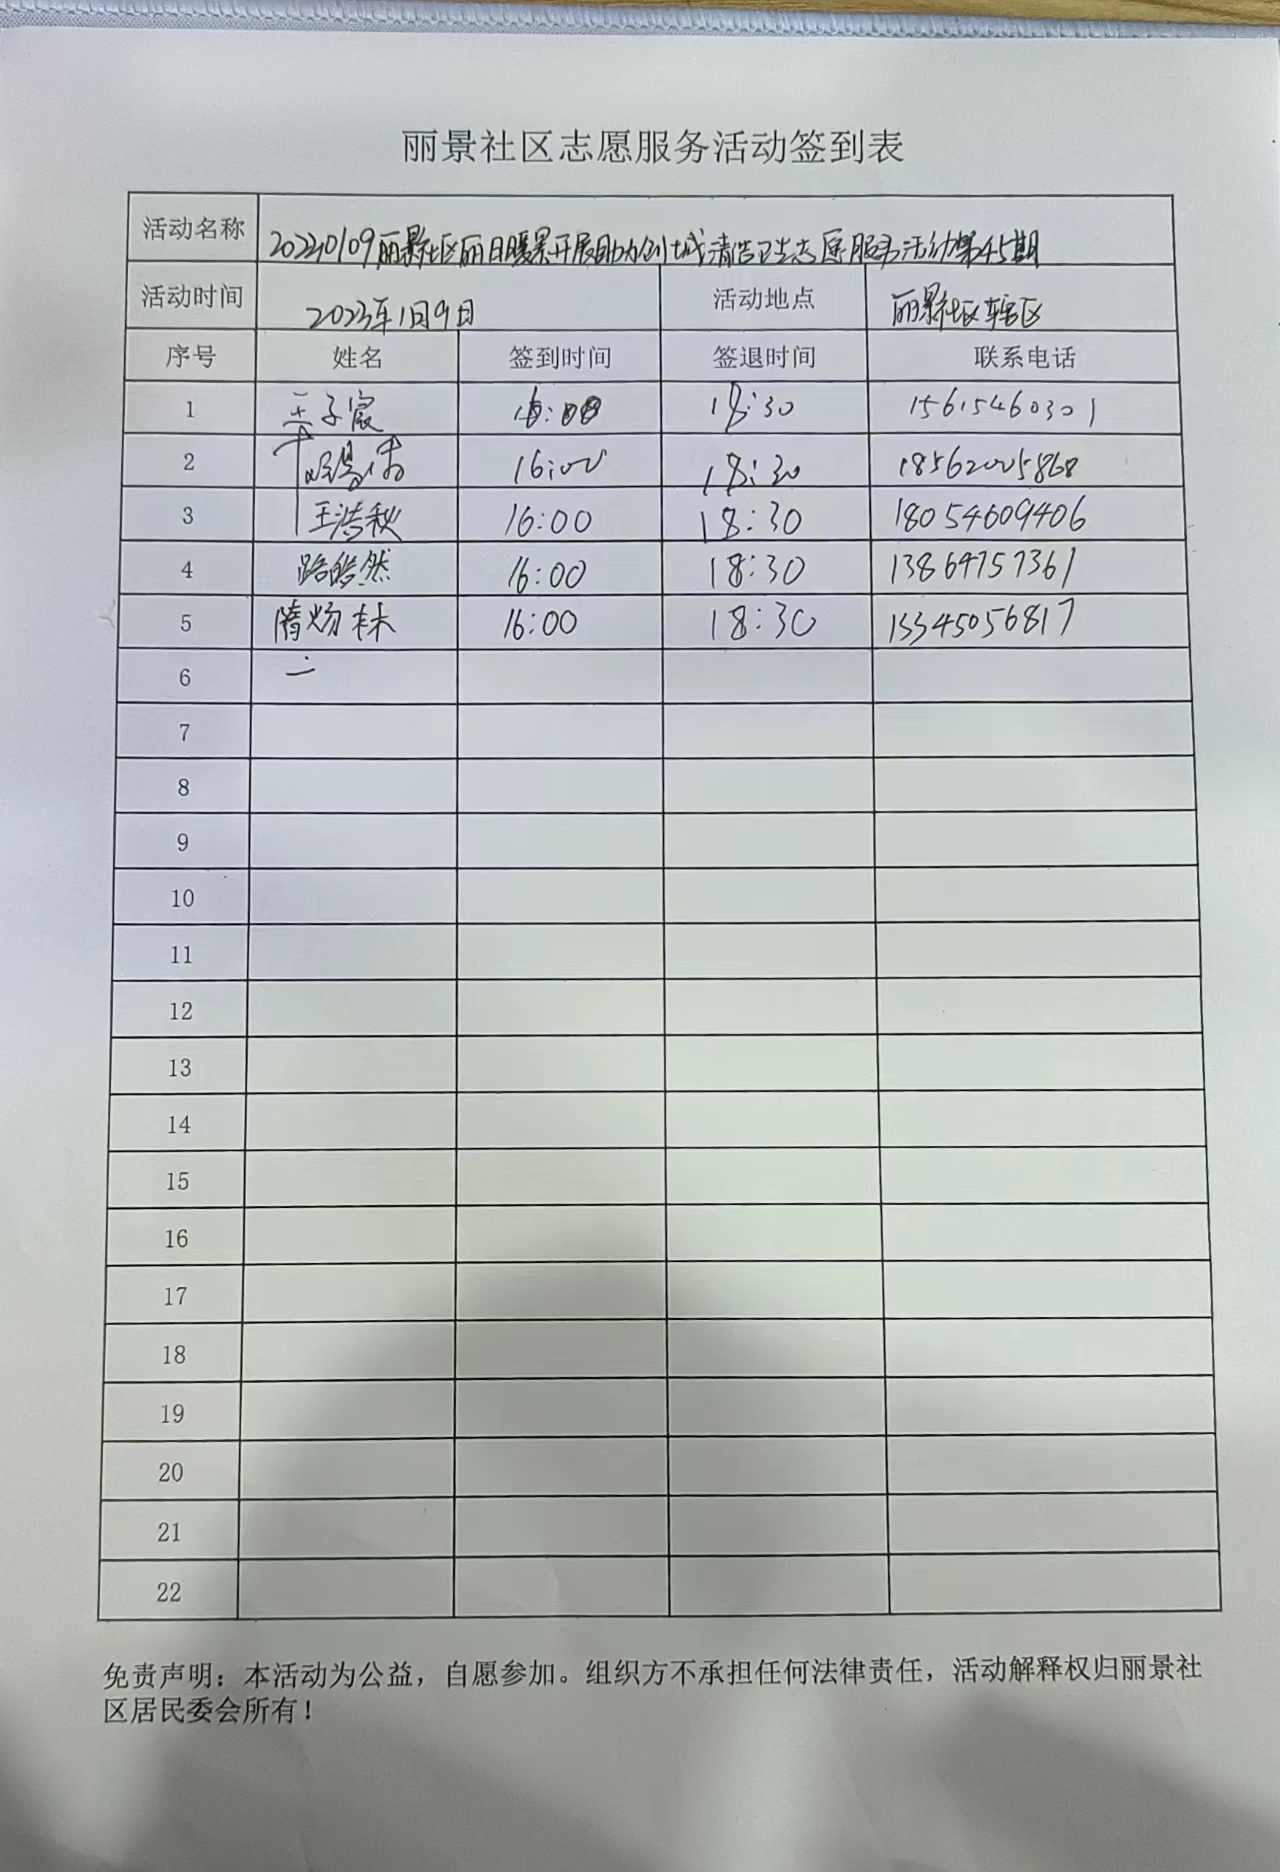 丽景社区志愿服务活动签到表
活动名称 20230109丽景社区丽日暖景开展助力创城清洁卫生志愿服务活动第45期
活动时间 2023年1月9日 活动地点 丽景社区辖区
序号 姓名 签到时间 签退时间 联系电话
1 子宸 16:00 18:30 15615460301
2 16:00 18:30 18562005868
3 王浩秋 16:00 18:30 18054609406
4 路皓然 16:00 18:30 13864757361
5 隋炀林 16:00 18:30 15345056817
6
7
8
9
10
11
12
13
14
15
16
17
18
19
20
21
22
免责声明：本活动为公益，自愿参加。组织方不承担任何法律责任，活动解释权归丽景社
区居民委会所有！